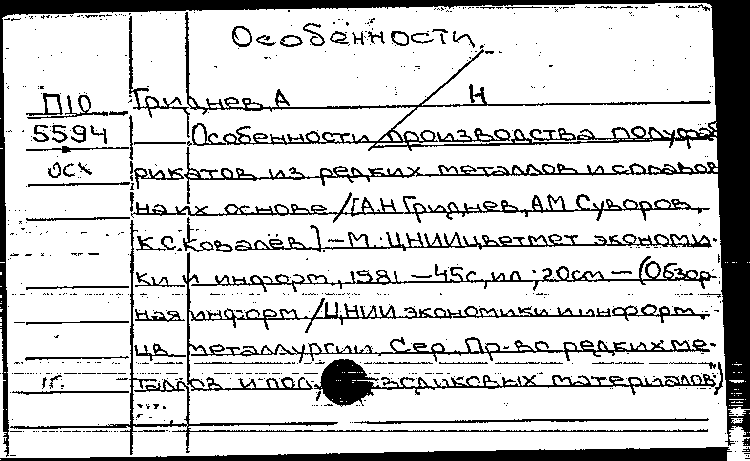 Особенности
П10 Гриднев А Н
5594 Особенности производства полуфаб
осх рикатов из редких металлов и сплавов
на их основе / [А.Н Гриднев, А.М Суворов,
К.С. Ковалёв] – М. : ЦНИИцветмет экономи-
ки и информ, 1981 – 45с, ил ; 20см – (Обзор-
ная информ. / ЦНИИ экономики и информ.
цв. металлургии. Сер. Пр-во редких ме-
1г. таллов и пол материалов)